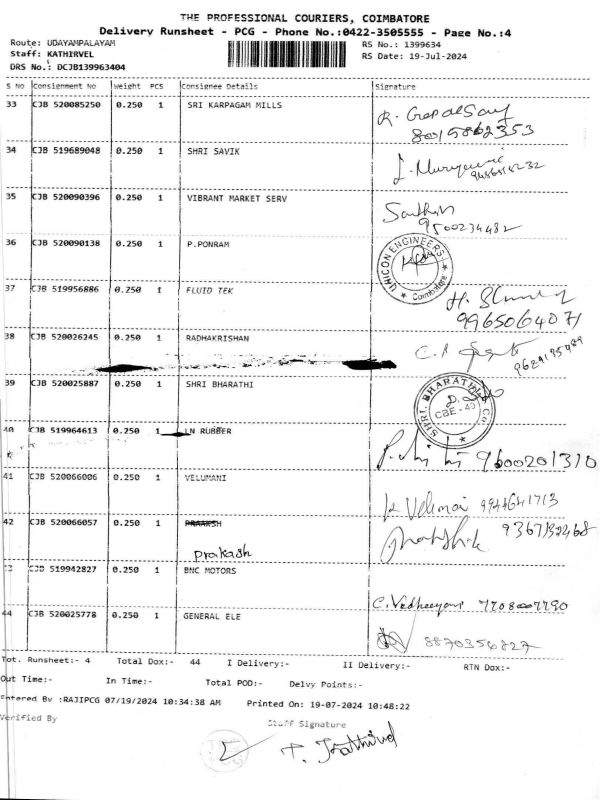 THE PROFESSIONAL COURIERS, COIMBATORE
Delivery Runsheet - PCG - Phone No.:0422-3505555 - Page No.:4
Route: UDAYAMPALAYAM RS No.: 1399634
Staff: KATHIRVEL RS Date: 19-Jul-2024
DRS No.: DCJB139963404
S No Consignment No Weight PCS Consignee Details Signature
33 CJB 520085250 0.250 1 SRI KARPAGAM MILLS
8015862353
34 CJB 519689048 0.250 1 SHRI SAVIK
35 CJB 520090396 0.250 1 VIBRANT MARKET SERV
9500234482
36 CJB 520090138 0.250 1 P.PONRAM
UNICON ENGINEERS * Coimbatore *
37 CJB 519956886 0.250 1 FLUID TEK
9965064071
38 CJB 520026245 0.250 1 RADHAKRISHAN
9629195989
39 CJB 520025887 0.250 1 SHRI BHARATHI
CBE-49
40 CJB 519964613 0.250 1 LN RUBBER
9600201310
41 CJB 520066006 0.250 1 VELUMANI
9944641713
42 CJB 520066057 0.250 1 PRAAKSH
prakash
43 CJB 519942827 0.250 1 BNC MOTORS
7708007790
44 CJB 520025778 0.250 1 GENERAL ELE
8870356827
Tot. Runsheet:- 4 Total Dox:- 44 I Delivery:- II Delivery:- RTN Dox:-
Out Time:- In Time:- Total POD:- Delvy Points:-
Entered By :RAJIPCG 07/19/2024 10:34:38 AM Printed On: 19-07-2024 10:48:22
Verified By Staff Signature
T. Kathirvel